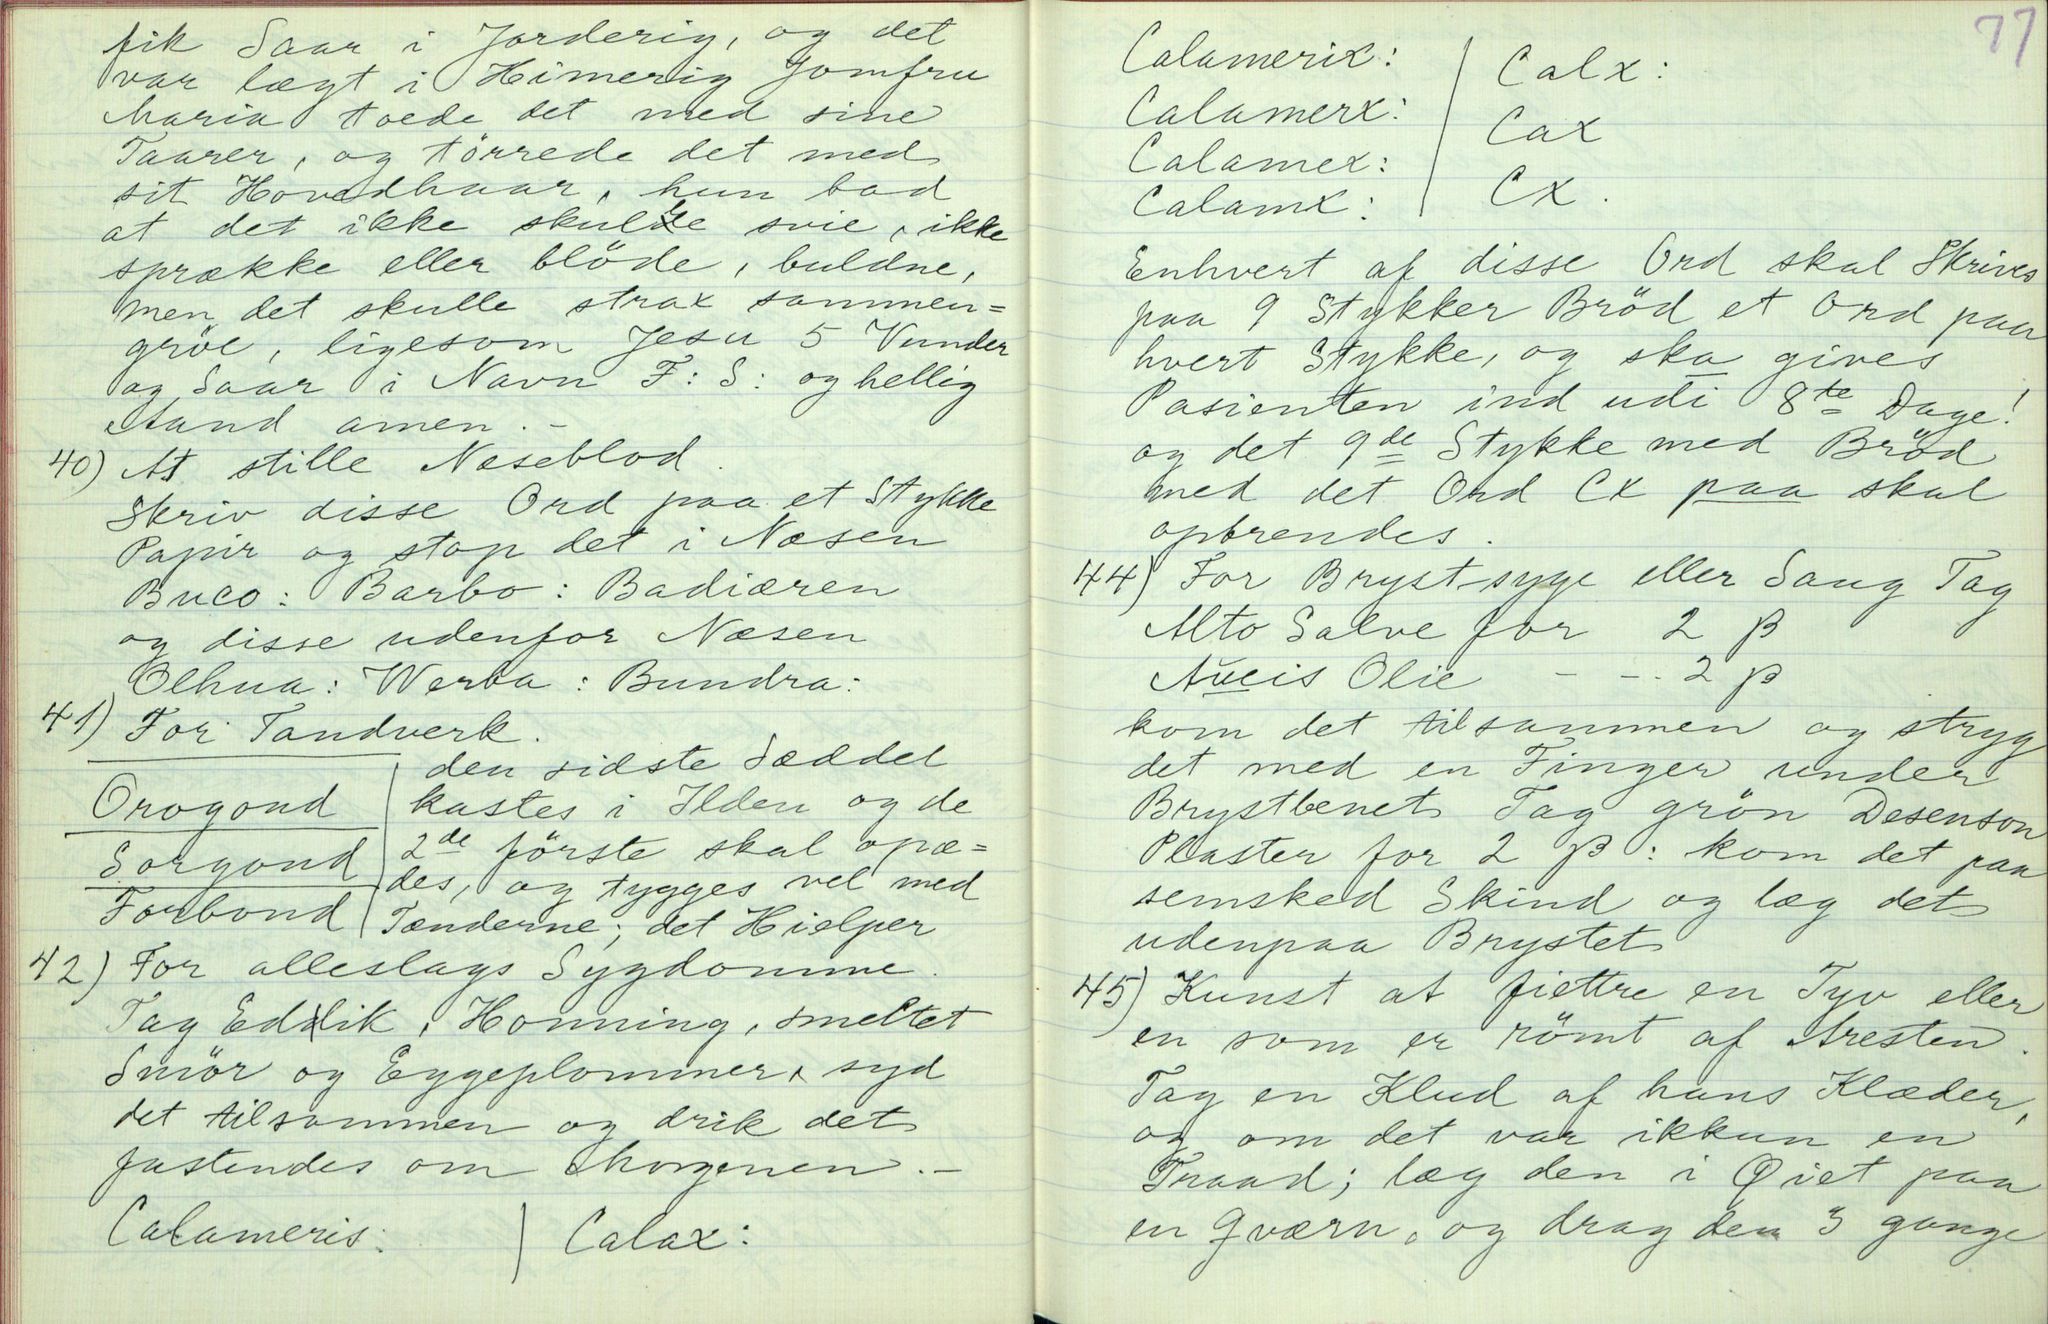 fik Saar i Jorderig, og det
var lægt i Himerig Jomfru
Maria toede det med sine
Taarer, og törrede det med
sit Hovedhaar, hun bad
at det ikke skulle svie, ikke
sprække eller blöde, buldne,
men det skulle strax sammen=
gröe, ligesom Jesu 5 Vunder
og Saar i Navn F: S: og hellig
Aand amen. –
40) At stille Næseblod.
Skriv disse Ord paa et Stykke
Papir og stop det i Næsen
Buco: Barbo: Badiæren
og disse udenfor Næsen
Olhua: Werba: Bundra:
41) For Tandverk.
Orogond
Sorgond
Forbond
den sidste Sæddel
kastes i Ilden og de
2de förste skal opæ=
des, og tygges vel med
Tænderne; det Hielper
42) For alleslags Sygdomme.
Tag Eddik, Honning, smeltet
Smör og Eggeplommer, syd
det tilsammen og drik det
fastendes om Morgenen. –
Calameris: | Calax:
77
Calamerix: | Calx:
Calamerx: | Cax
Calamex: | Cx.
Calamx:
Enhvert af disse Ord skal Skrives
paa 9 Stykker Bröd et Ord paa
hvert Stykke, og ska gives
Pasienten ind udi 8te Dage!
og det 9de Stykke med Bröd
med det Ord Cx paa skal
opbrendes.
44) For Bryst-syge eller Sang Tag
Alto Salve for 2 β
Aucis Olie – – . 2 β
kom det tilsammen og stryg
det med en Finger under
Brystbenet Tag grön Desenson
Plaster for 2 β: kom det paa
semsked Skind og læg det
udenpaa Brystet
45) Kunst at fiettre en Tyv eller
en som er römt af Aresten.
Tag en Klud af hans Klæder,
og om det var ikkun en
Traad; læg den i Øiet paa
en Qværn, og drag den 3 gange